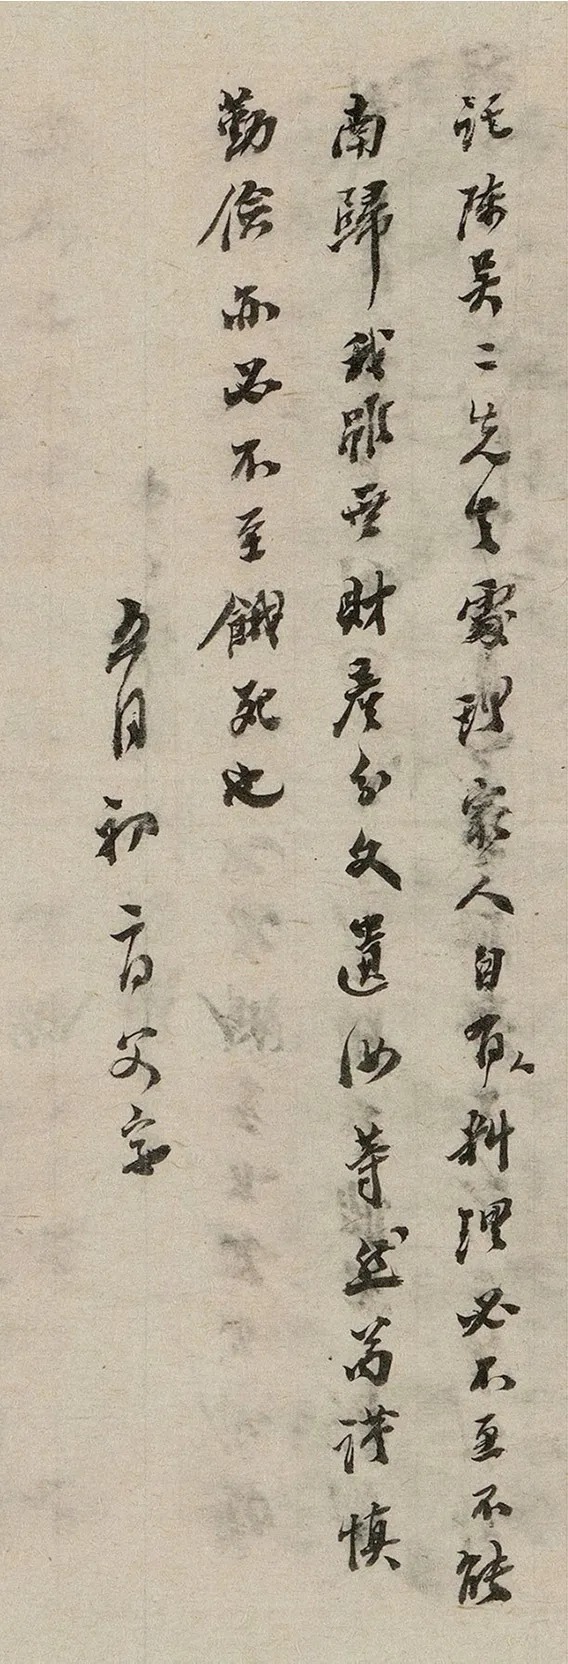 託陳吴二先生處理家人自有人料理必不至不能
南歸我雖無財產分文遺汝等然苟謹慎
勤儉亦必不至餓死也
五月初六日父字